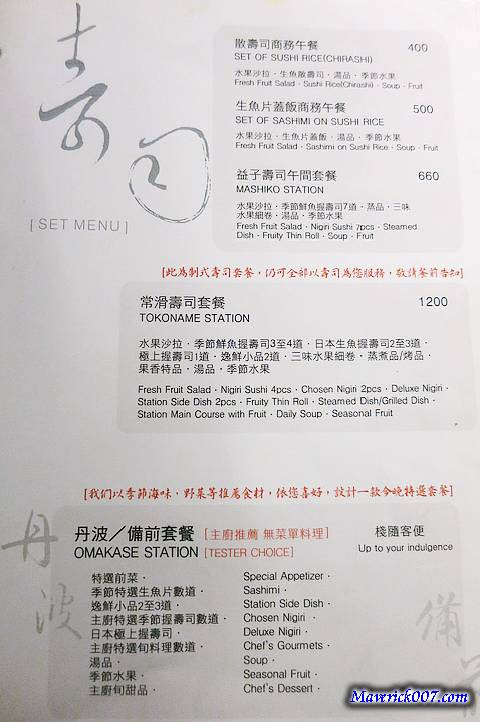 壽司
[ SET MENU ]
散壽司商務午餐 400
SET OF SUSHI RICE(CHIRASHI)
水果沙拉・生魚散壽司・湯品・季節水果
Fresh Fruit Salad・Sushi Rice(Chirashi)・Soup・Fruit
生魚片蓋飯商務午餐 500
SET OF SASHIMI ON SUSHI RICE
水果沙拉・生魚片蓋飯・湯品・季節水果
Fresh Fruit Salad・Sashimi on Sushi Rice・Soup・Fruit
益子壽司午間套餐 660
MASHIKO STATION
水果沙拉・季節鮮魚握壽司7道・蒸品・三味
水果細卷・湯品・季節水果
Fresh Fruit Salad・Nigiri Sushi 7pcs・Steamed
Dish・Fruity Thin Roll・Soup・Fruit
[此為制式壽司套餐，仍可全部以壽司為您服務，敬請餐前告知]
常滑壽司套餐 1200
TOKONAME STATION
水果沙拉・季節鮮魚握壽司3至4道・日本生魚握壽司2至3道・
極上握壽司1道・逸鮮小品2道・三味水果細卷・蒸煮品/烤品・
果香特品・湯品・季節水果
Fresh Fruit Salad・Nigiri Sushi 4pcs・Chosen Nigiri 2pcs・Deluxe Nigiri・
Station Side Dish 2pcs・Fruity Thin Roll・Steamed Dish/Grilled Dish・
Station Main Course with Fruit・Daily Soup・Seasonal Fruit
[我們以季節海味・野菜等推薦食材，依您喜好，設計一款今晚特選套餐]
丹波
丹波／備前套餐 [主廚推薦 無菜單料理] 棧隨客便
OMAKASE STATION [TESTER CHOICE] Up to your indulgence
特選前菜・ Special Appetizer・
季節特選生魚片數道・ Sashimi・
逸鮮小品2至3道・ Station Side Dish・
主廚特選季節握壽司數道・ Chosen Nigiri・
日本極上握壽司・ Deluxe Nigiri・
主廚特選旬料理數道・ Chef's Gourmets・
湯品・ Soup・
季節水果・ Seasonal Fruit・
主廚旬甜品・ Chef's Dessert・
備前
Mawrick007.com